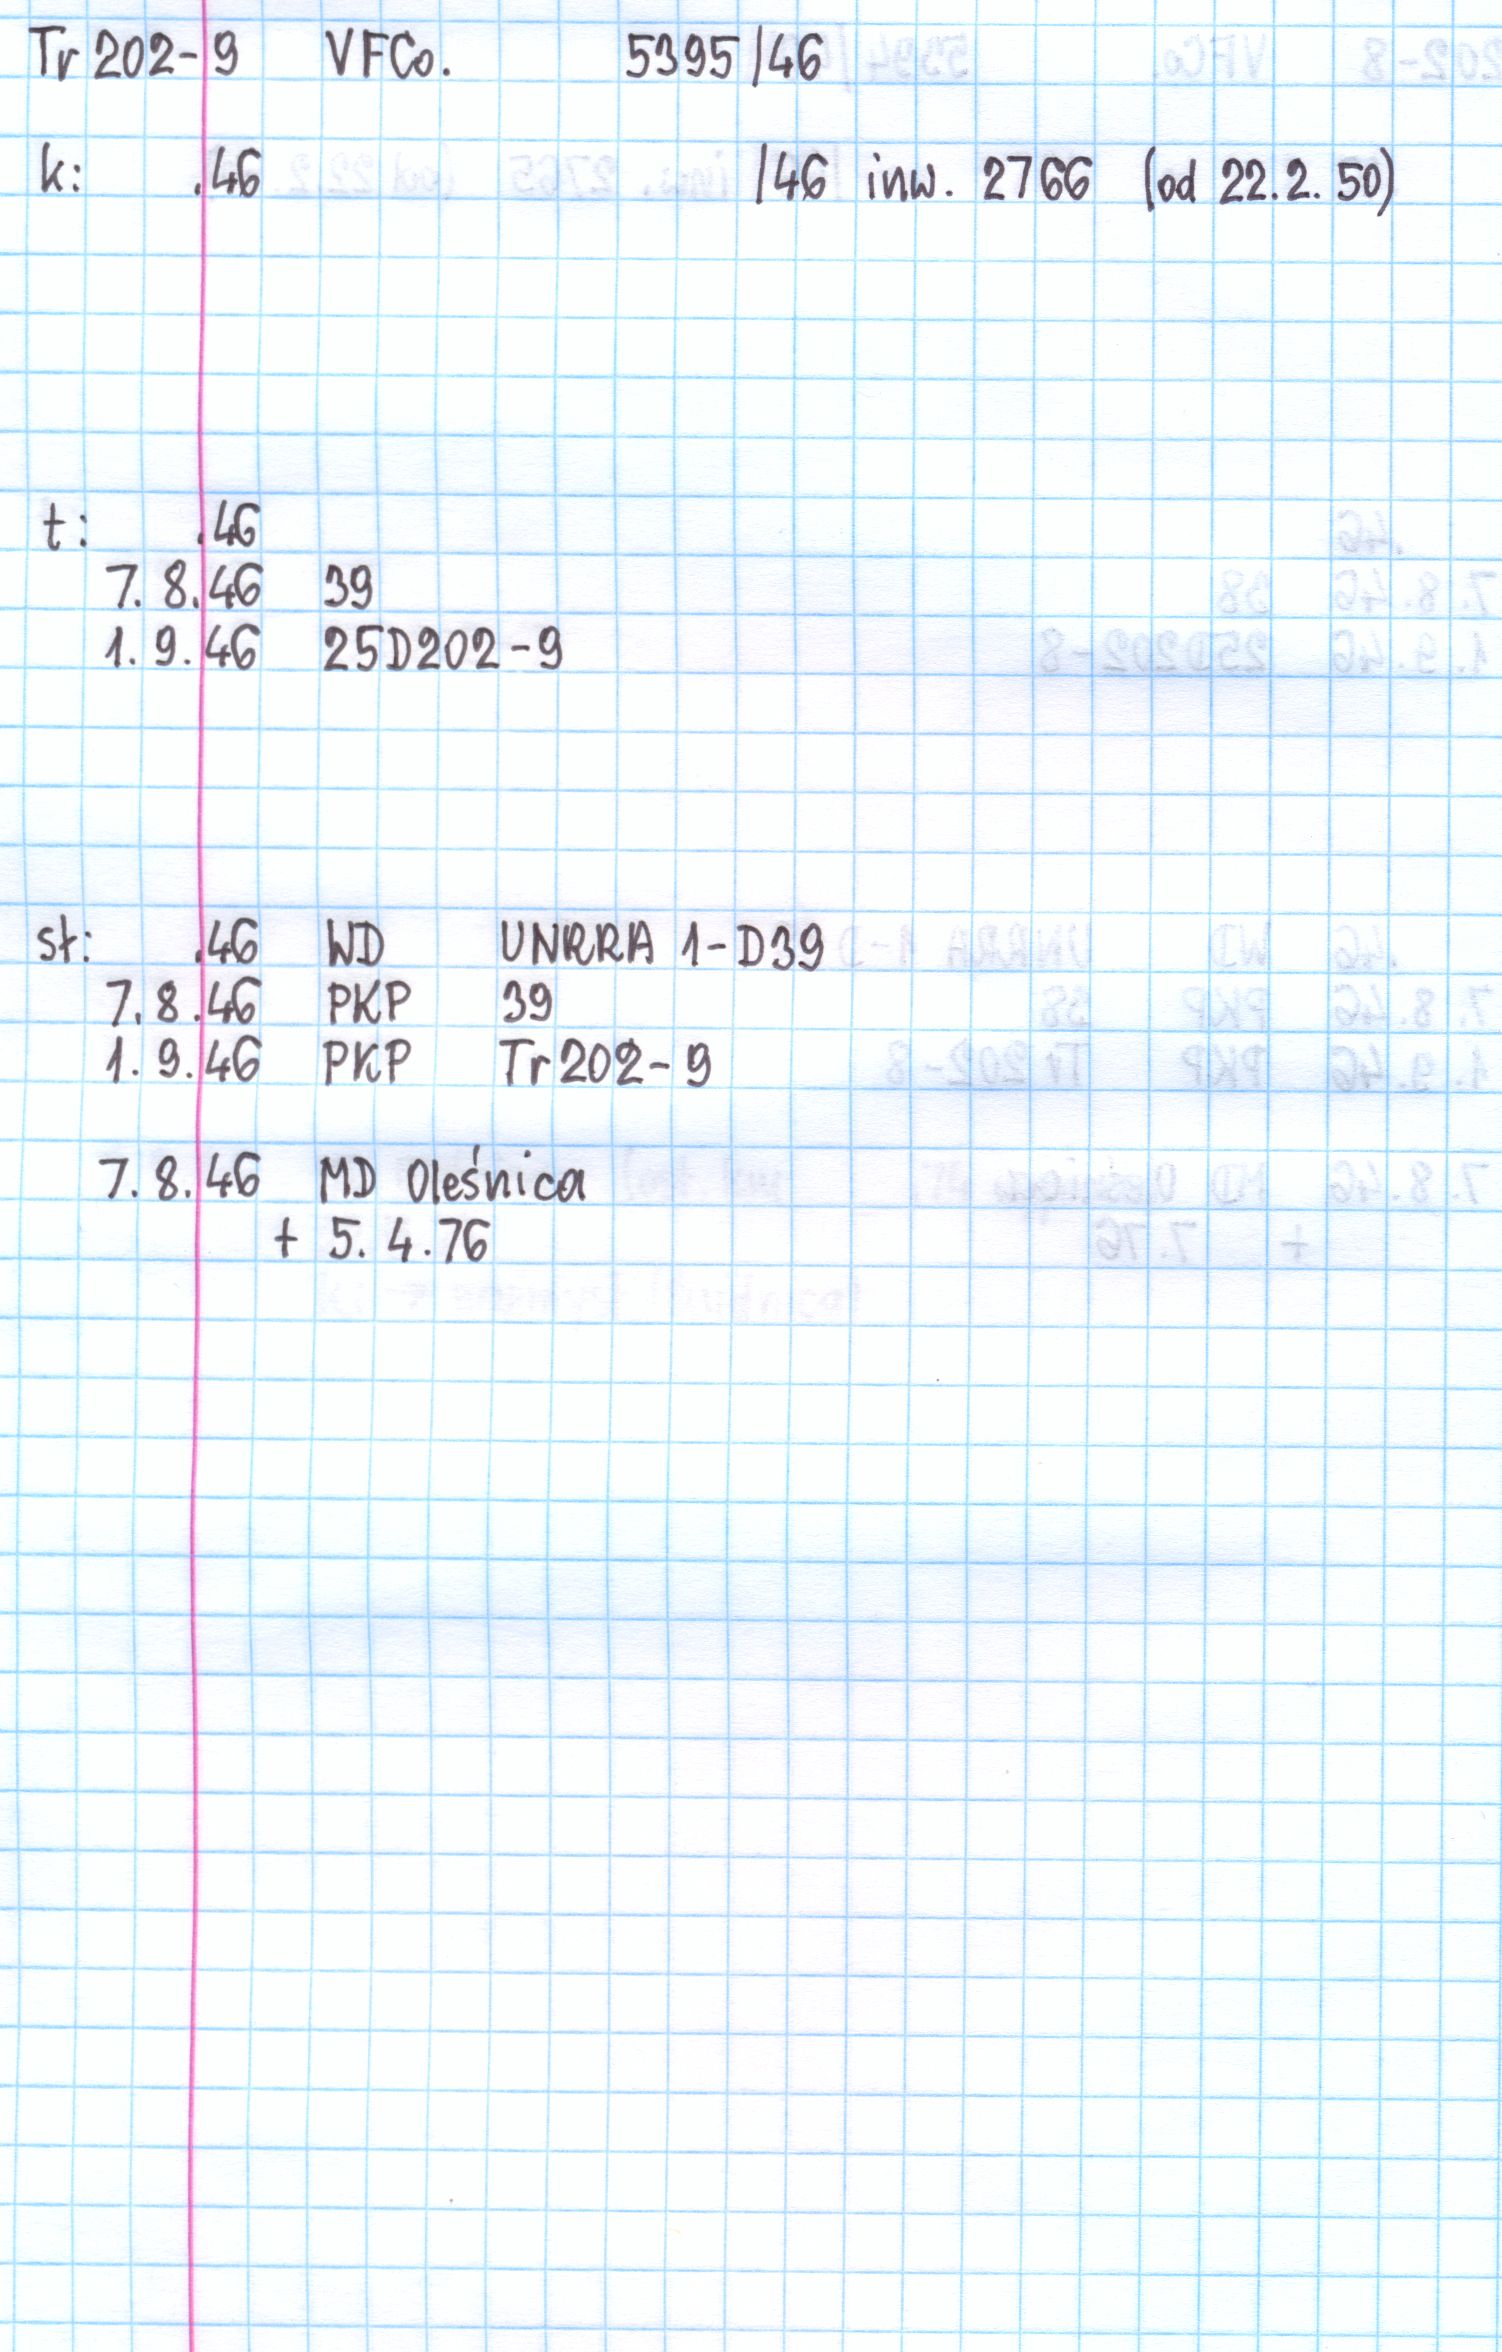 Tr 202-9 VFCo. 5395/46
k: .46 /46 inw. 2766 (od 22.2.50)
t: .46
7.8.46 39
1.9.46 25D202-9
st: .46 WD UNRRA 1-D39
7.8.46 PKP 39
1.9.46 PKP Tr202-9
7.8.46 MD Oleśnica
+ 5.4.76